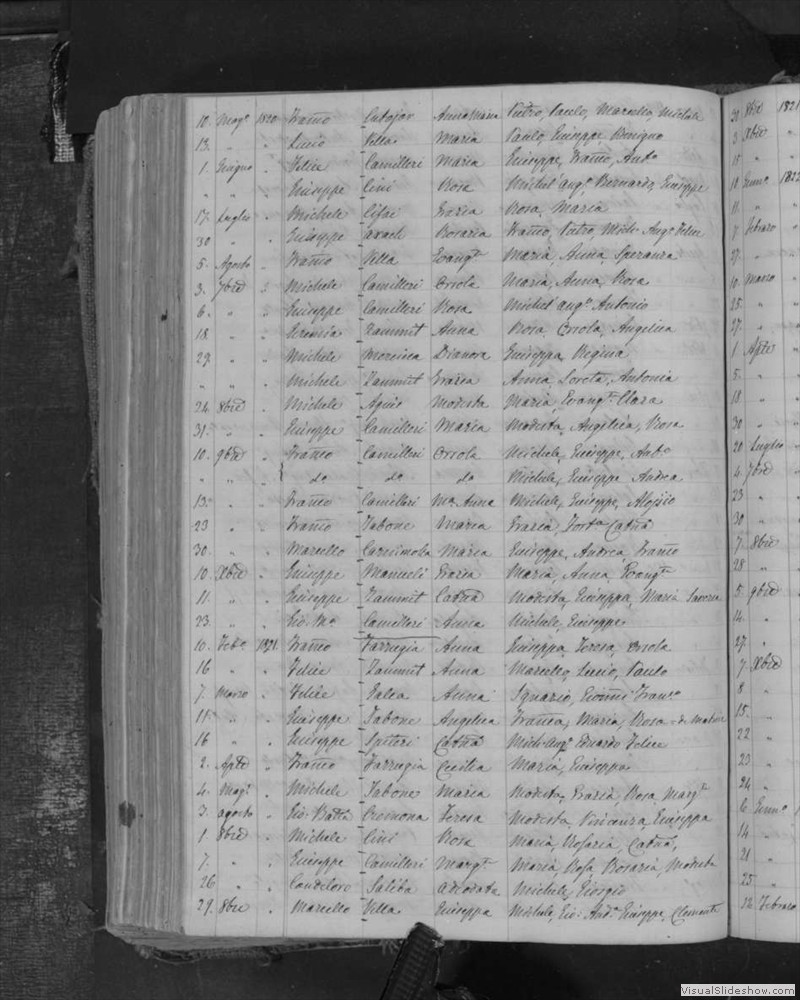 10. Magᵒ 1820 Franᶜᵒ Cutajar Annamaria Pietro, Paulo, Marcello, Michele
13. " " Lucio Vella Maria Paulo, Giuseppe, Benigno
1. Giugno " Felice Camilleri Maria Giuseppe, Franᶜᵒ, Antᵒ
" " " Giuseppe Cini Rosa Michel'angᵒ, Bernardo, Giuseppe
17. Luglio " Michele Rosa, Maria
30 " " Giuseppe Axach Rosaria Franᶜᵒ, Pietro, Mich. Angᵒ Felice
5. Agosto " Franᶜᵒ Vella Evangᵗᵃ Maria, Anna Speranza
3. 7bre " Michele Camilleri Orsola Maria, Anna, Rosa
6. " " Giuseppe Camilleri Rosa Michel'angᵒ Antonio
18. " " Geremia Zammit Anna Rosa Orsola, Angelica
29. " " Michele Dianora Giuseppa, Regina
" " " Michele Zammit Grazia Anna, Loreta, Antonia
24. 8bre " Michele Agius Modesta Maria, Evangᵗᵃ Clara
31. " " Giuseppe Camilleri Maria Modesta, Angelica, Rosa
10. 9bre " Franᶜᵒ Camilleri Orsola Michele, Giuseppe, Antᵒ
" " " do do do Michele, Giuseppe Andrea
13. " " Franᶜᵒ Camilleri Mᵃ Anna Michele, Giuseppe, Aloisio
23 " " Franᶜᵒ Tabone Maria Grazia, Fortᵃ Catñā
30. " " Marcello Maria Giuseppe, Andrea, Franᶜᵒ
10. Xbre " Giuseppe Grazia Maria, Anna, Evangᵗᵃ
11. " " Giuseppe Zammit Catñā Modesta, Giuseppa, Maria Saveria
23. " " Gio: Mᵃ Camilleri Anna Michele, Giuseppe
10. Febᵒ 1821. Franᶜᵒ Farrugia Anna Giuseppa, Teresa, Orsola
16 " " Felice Zammit Anna Marcello, Lucio, Paulo
7. Marzo " Felice Galea Anna Ignazio, Giovñi Franᶜᵒ
11. " " Giuseppe Tabone Angelica Franᶜᵃ, Maria, Rosa
16 " " Giuseppe Spiteri Catñā Mich-Angᵒ Eduardo Felice
2. Aple " Franᶜᵒ Farrugia Cecilia Maria, Giuseppa
4. Magᵒ " Michele Tabone Maria Modesta, Grazia, Rosa, Margᵗᵃ
3. agosto " Gio: Battᵃ Cremona Teresa Modesta, Vincenza, Giuseppa
1. 8bre " Michele Cini Rosa Maria, Rosaria, Catñā,
7. " " Giuseppe Camilleri Margᵗᵃ Maria, Rosa, Rosaria, Modesta
26 " " Candeloro Saliba Adeodata Michele, Giorgio
29. 8bre " Marcello Vella Giuseppa Michele, Gio: Andᵃ Giuseppe, Clemente
9bre 1821
3. Xbre "
15 " "
10. Gennᵒ 1822
11. " "
7. Febraro "
27. "
10. Marzo "
25. "
27. "
1. Aple
5. "
18. "
30 "
20 Luglio
4. 7bre
23 "
30 "
7. 8bre
28 "
5. 9bre
14. "
27. "
7. Xbre
8 "
15. "
22 "
23 "
24 "
6. Gennᵒ
14 "
21 "
25. "
12 Febraro
VisualSlideshow.com